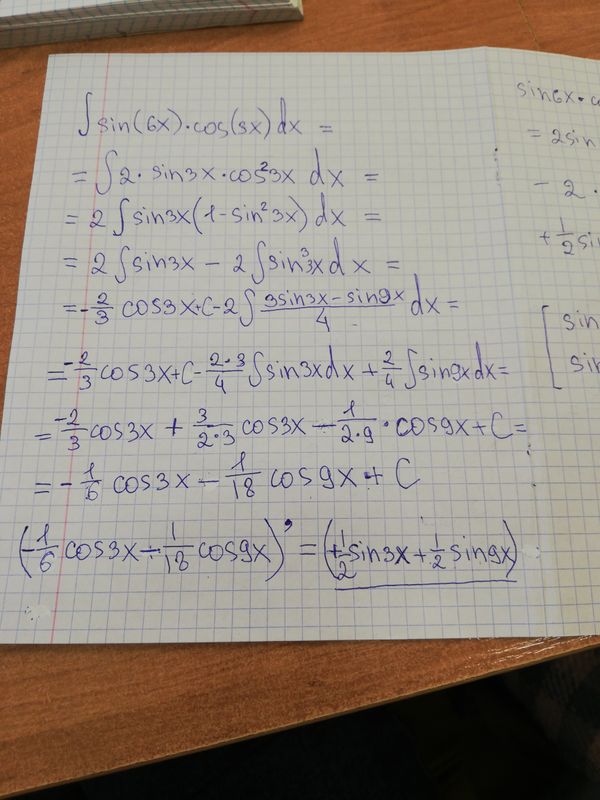 ∫sin(6x)·cos(3x)dx =
= ∫2·sin3x·cos²3x dx =
= 2∫sin3x(1-sin²3x)dx =
= 2∫sin3x - 2∫sin³3xdx =
= -2/3 cos3x+C-2∫(3sin3x-sin9x)/4 dx =
= -2/3 cos3x+C - (2·3)/4 ∫sin3xdx + 2/4 ∫sin9xdx =
= -2/3 cos3x + 3/(2·3) cos3x - 1/(2·9)·cos9x + C =
= -1/6 cos3x - 1/18 cos9x + C
(-1/6 cos3x - 1/18 cos9x)' = (+1/2 sin3x + 1/2 sin9x)
sin6x·co
= 2sin
- 2·
+ 1/2 si
[ sin
sin